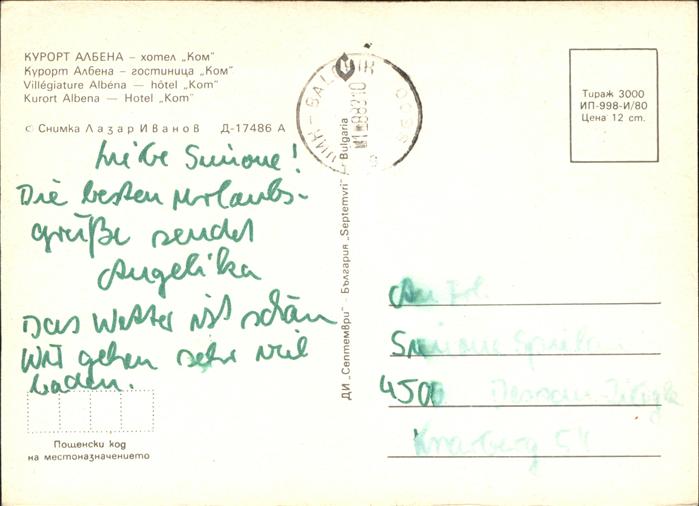 КУРОРТ АЛБЕНА – хотел „Ком“
Курорт Албена – гостиница „Ком“
Villégiature Albéna – hôtel „Kom“
Kurort Albena – Hotel „Kom“
© Снимка Лазар Иванов Д-17486 А
Liebe Simone!
Die besten Urlaubs-
grüße sendet
Angelika
Das Wetter ist schön
Wir gehen sehr viel
baden.
Пощенски код
на местоназначението
ДИ „Септември“ - България „Septemvri“ - Bulgaria
Тираж 3000
ИП-998-И/80
Цена 12 ст.
An
Simone
4500 Dessau